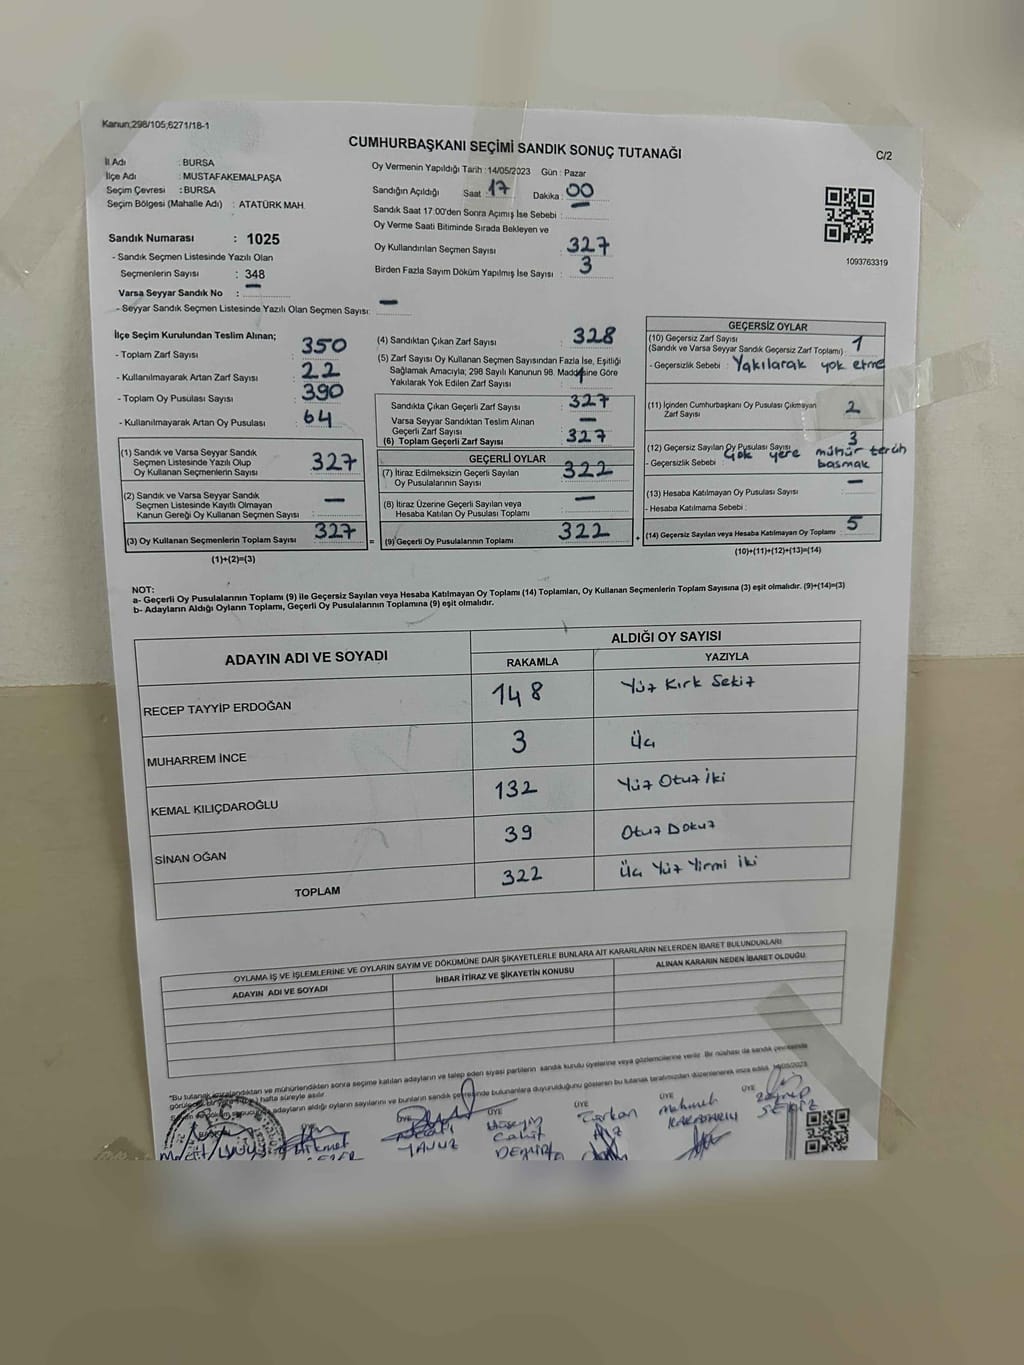 Kanun;298/105;6271/18-1
CUMHURBAŞKANI SEÇİMİ SANDIK SONUÇ TUTANAĞI
C/2
İl Adı : BURSA
İlçe Adı : MUSTAFAKEMALPAŞA
Seçim Çevresi : BURSA
Seçim Bölgesi (Mahalle Adı) : ATATÜRK MAH.
Sandık Numarası : 1025
- Sandık Seçmen Listesinde Yazılı Olan
Seçmenlerin Sayısı : 348
Varsa Seyyar Sandık No : —
- Seyyar Sandık Seçmen Listesinde Yazılı Olan Seçmen Sayısı: —
Oy Vermenin Yapıldığı Tarih : 14/05/2023 Gün : Pazar
Sandığın Açıldığı Saat : 17 Dakika : 00
Sandık Saat 17:00'den Sonra Açımış İse Sebebi : —
Oy Verme Saati Bitiminde Sırada Bekleyen ve
Oy Kullandırılan Seçmen Sayısı : 327
Birden Fazla Sayım Döküm Yapılmış İse Sayısı : 3
1093763319
İlçe Seçim Kurulundan Teslim Alınan;
- Toplam Zarf Sayısı : 350
- Kullanılmayarak Artan Zarf Sayısı : 22
- Toplam Oy Pusulası Sayısı : 390
- Kullanılmayarak Artan Oy Pusulası : 64
(1) Sandık ve Varsa Seyyar Sandık
Seçmen Listesinde Yazılı Olup
Oy Kullanan Seçmenlerin Sayısı : 327
(2) Sandık ve Varsa Seyyar Sandık
Seçmen Listesinde Kayıtlı Olmayan
Kanun Gereği Oy Kullanan Seçmen Sayısı : —
(3) Oy Kullanan Seçmenlerin Toplam Sayısı : 327
(1)+(2)=(3)
(4) Sandıktan Çıkan Zarf Sayısı : 328
(5) Zarf Sayısı Oy Kullanan Seçmen Sayısından Fazla İse, Eşitliği
Sağlamak Amacıyla; 298 Sayılı Kanunun 98. Maddesine Göre
Yakılarak Yok Edilen Zarf Sayısı : 1
Sandıkta Çıkan Geçerli Zarf Sayısı : 327
Varsa Seyyar Sandıktan Teslim Alınan
Geçerli Zarf Sayısı : —
(6) Toplam Geçerli Zarf Sayısı : 327
GEÇERLİ OYLAR
(7) İtiraz Edilmeksizin Geçerli Sayılan
Oy Pusulalarının Sayısı : 322
(8) İtiraz Üzerine Geçerli Sayılan veya
Hesaba Katılan Oy Pusulası Toplamı : —
= (9) Geçerli Oy Pusulalarının Toplamı : 322
GEÇERSİZ OYLAR
(10) Geçersiz Zarf Sayısı
(Sandık ve Varsa Seyyar Sandık Geçersiz Zarf Toplamı) : 1
- Geçersizlik Sebebi : Yakılarak yok etme
(11) İçinden Cumhurbaşkanı Oy Pusulası Çıkmayan
Zarf Sayısı : 2
(12) Geçersiz Sayılan Oy Pusulası Sayısı : 3
- Geçersizlik Sebebi : Çok yere mühür tercih
basmak
(13) Hesaba Katılmayan Oy Pusulası Sayısı : —
- Hesaba Katılmama Sebebi :
+ (14) Geçersiz Sayılan veya Hesaba Katılmayan Oy Toplamı : 5
(10)+(11)+(12)+(13)=(14)
NOT:
a- Geçerli Oy Pusulalarının Toplamı (9) ile Geçersiz Sayılan veya Hesaba Katılmayan Oy Toplamı (14) Toplamları, Oy Kullanan Seçmenlerin Toplam Sayısına (3) eşit olmalıdır. (9)+(14)=(3)
b- Adayların Aldığı Oyların Toplamı, Geçerli Oy Pusulalarının Toplamına (9) eşit olmalıdır.
ADAYIN ADI VE SOYADI
ALDIĞI OY SAYISI
RAKAMLA YAZIYLA
RECEP TAYYİP ERDOĞAN 148 Yüz Kırk Sekiz
MUHARREM İNCE 3 Üç
KEMAL KILIÇDAROĞLU 132 Yüz Otuz İki
SİNAN OĞAN 39 Otuz Dokuz
TOPLAM 322 Üç Yüz Yirmi İki
OYLAMA İŞ VE İŞLEMLERİNE VE OYLARIN SAYIM VE DÖKÜMÜNE DAİR ŞİKAYETLERLE BUNLARA AİT KARARLARIN NELERDEN İBARET BULUNDUKLARI
ADAYIN ADI VE SOYADI
İHBAR İTİRAZ VE ŞİKAYETİN KONUSU
ALINAN KARARIN NEDEN İBARET OLDUĞU
ve mühürlendikten sonra seçime katılan adayların ve talep eden siyasi partilerin sandık kurulu üyelerine veya gözlemcilerine verilir. Bir nüshası da sandık çevresinde
hafta süreyle asılır
adayların aldığı oyların sayılarını ve bunların sandık çevresinde bulunanlara duyurulduğunu gösteren bu tutanak tarafımızdan düzenlenerek imza edildi. 14/05/2023
ÜYE ÜYE ÜYE ÜYE ÜYE
Hikmet
YAVUZ
Hüseyin
Cahit
Mehmet
Zeynep